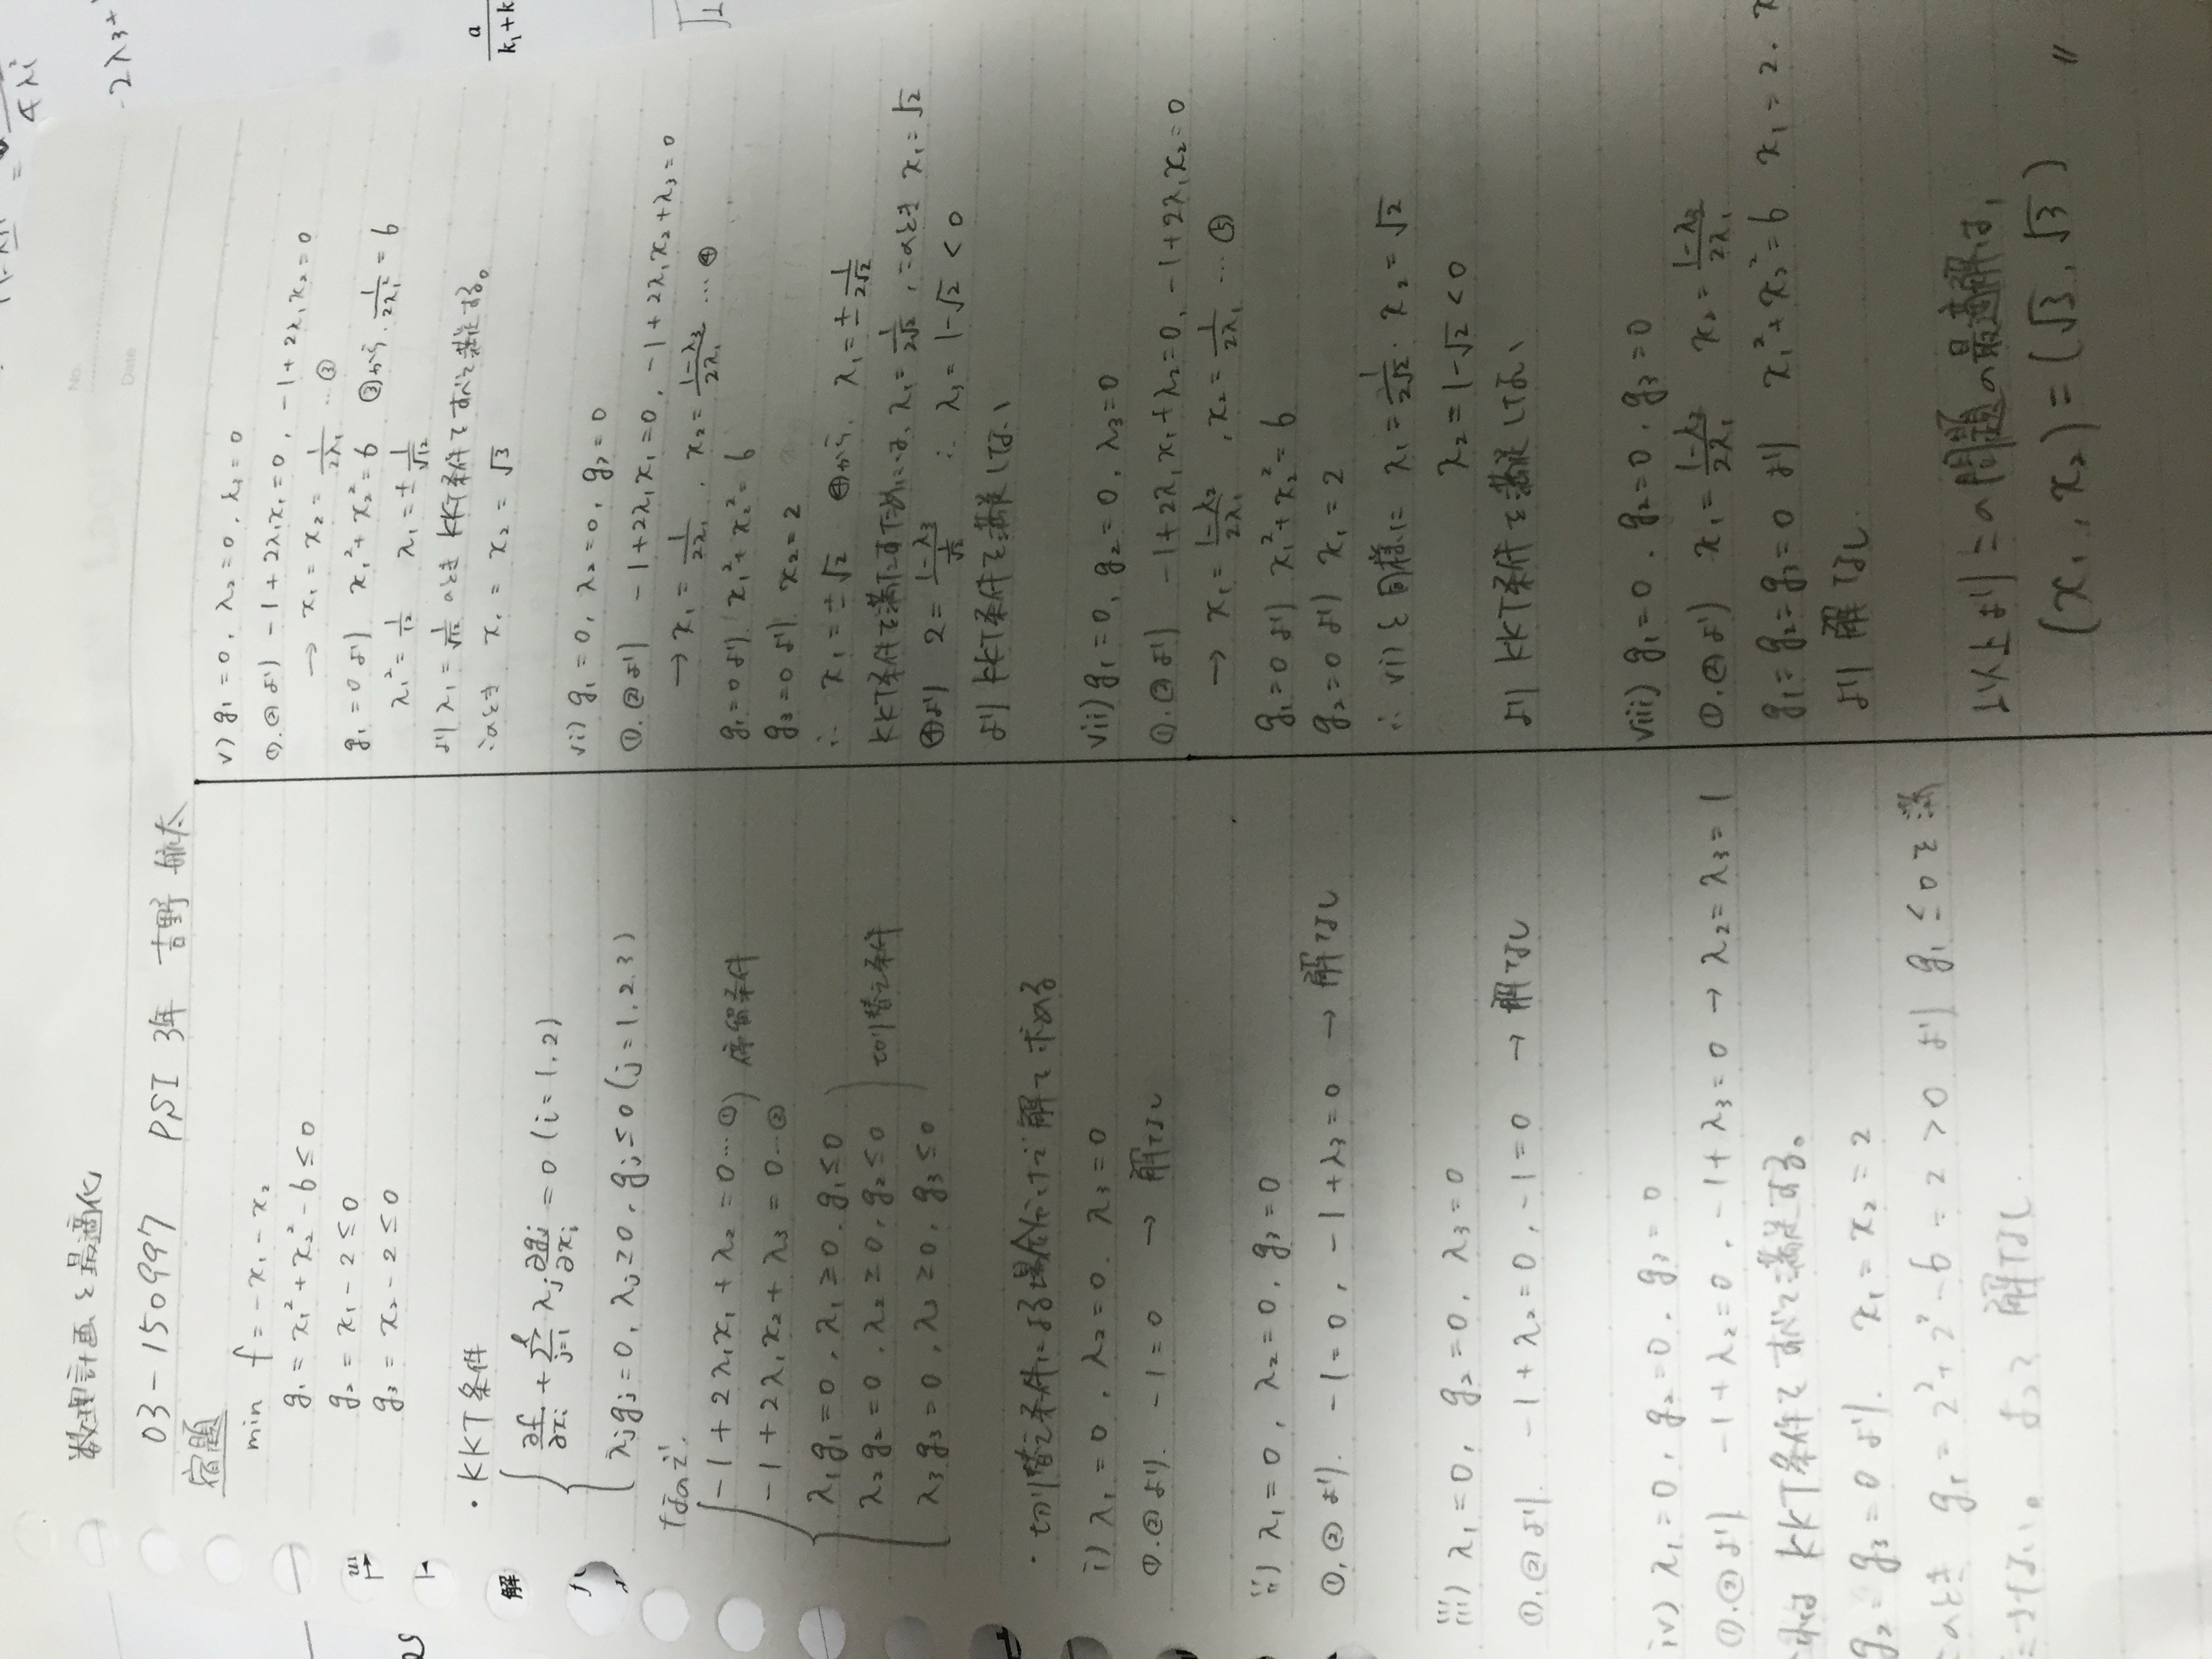 数理計画と最適化
No.
Date
03-150997 PSI 3年 吉野 航太
宿題
min f = -x₁ - x₂
g₁ = x₁² + x₂² - 6 ≤ 0
g₂ = x₁ - 2 ≤ 0
g₃ = x₂ - 2 ≤ 0
・KKT条件
∂f/∂xᵢ + Σ_{j=1}^{l} λⱼ ∂gⱼ/∂xᵢ = 0 (i=1,2)
λⱼgⱼ=0, λⱼ≥0, gⱼ≤0 (j=1,2,3)
なので、
-1 + 2λ₁x₁ + λ₂ = 0 …① 停留条件
-1 + 2λ₁x₂ + λ₃ = 0 …②
λ₁g₁=0, λ₁≥0, g₁≤0
λ₂g₂=0, λ₂≥0, g₂≤0 切り替え条件
λ₃g₃=0, λ₃≥0, g₃≤0
・切り替え条件による場合分けで解を求める
i) λ₁=0, λ₂=0, λ₃=0
①.②より. -1=0 → 解なし
ii) λ₁=0, λ₂=0, g₃=0
①,②より. -1=0, -1+λ₃=0 → 解なし
iii) λ₁=0, g₂=0, λ₃=0
①,②より. -1+λ₂=0, -1=0 → 解なし
iv) λ₁=0, g₂=0, g₃=0
①.②より -1+λ₂=0, -1+λ₃=0 → λ₂=λ₃=1
れは KKT条件をすべて満足する。
g₂=g₃=0より. x₁=x₂=2
このとき g₁=2²+2²-6=2>0 より g₁≤0を満
たさない。よって 解なし.
v) g₁=0, λ₂=0, λ₃=0
①.②より -1+2λ₁x₁=0, -1+2λ₁x₂=0
→ x₁=x₂=1/(2λ₁) …③
g₁=0より x₁²+x₂²=6 ③から. 1/(2λ₁²)=6
λ₁²=1/12 λ₁=±1/√12
より λ₁=1/√12 のとき KKT条件をすべて満足する。
このとき x₁=x₂=√3
vi) g₁=0, λ₂=0, g₃=0
①.②より -1+2λ₁x₁=0, -1+2λ₁x₂+λ₃=0
→ x₁=1/(2λ₁), x₂=(1-λ₃)/(2λ₁) …④
g₁=0より. x₁²+x₂²=6
g₃=0より. x₂=2
∴ x₁=±√2 ④から, λ₁=±1/(2√2)
KKT条件を満たすためには, λ₁=1/(2√2), このとき x₁=√2
④より 2=(1-λ₃)/(1/√2) ∴ λ₃=1-√2<0
より KKT条件を満足しない
vii) g₁=0, g₂=0, λ₃=0
①.②より -1+2λ₁x₁+λ₂=0, -1+2λ₁x₂=0
→ x₁=(1-λ₂)/(2λ₁), x₂=1/(2λ₁) …⑤
g₁=0より x₁²+x₂²=6
g₂=0より x₁=2
∴ vi)と同様に λ₁=1/(2√2). x₂=√2
λ₂=1-√2<0
より KKT条件を満足しない
viii) g₁=0, g₂=0, g₃=0
①.②より x₁=(1-λ₂)/(2λ₁) x₂=(1-λ₃)/(2λ₁)
g₁=g₂=g₃=0より x₁²+x₂²=6 x₁=2.
より 解なし.
以上よりこの問題の最適解は,
(x₁, x₂)=(√3, √3) 〃
4λ₁²
-2λ₃+
a
k₁+k
解